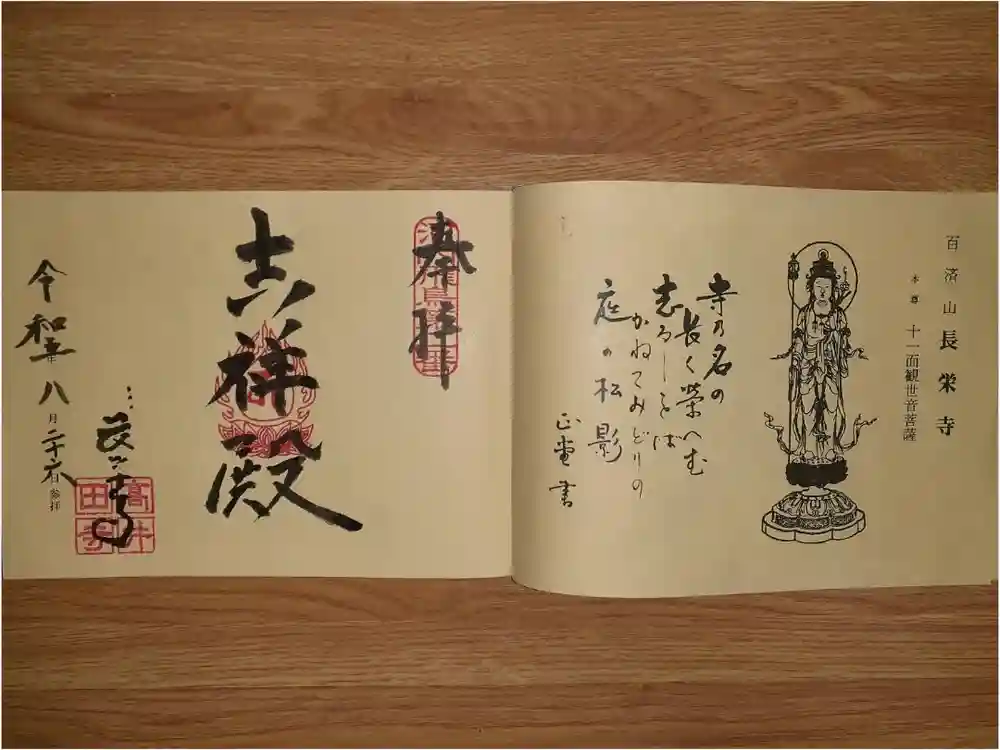 百済山 長栄寺
本尊 十一面観世音菩薩
寺乃名の
長く栄へむ
志るしとば
かねてみどりの
庭の松影
正堂書
奉拝
吉祥殿
令和
八月二十六日参拝
高井
田寺